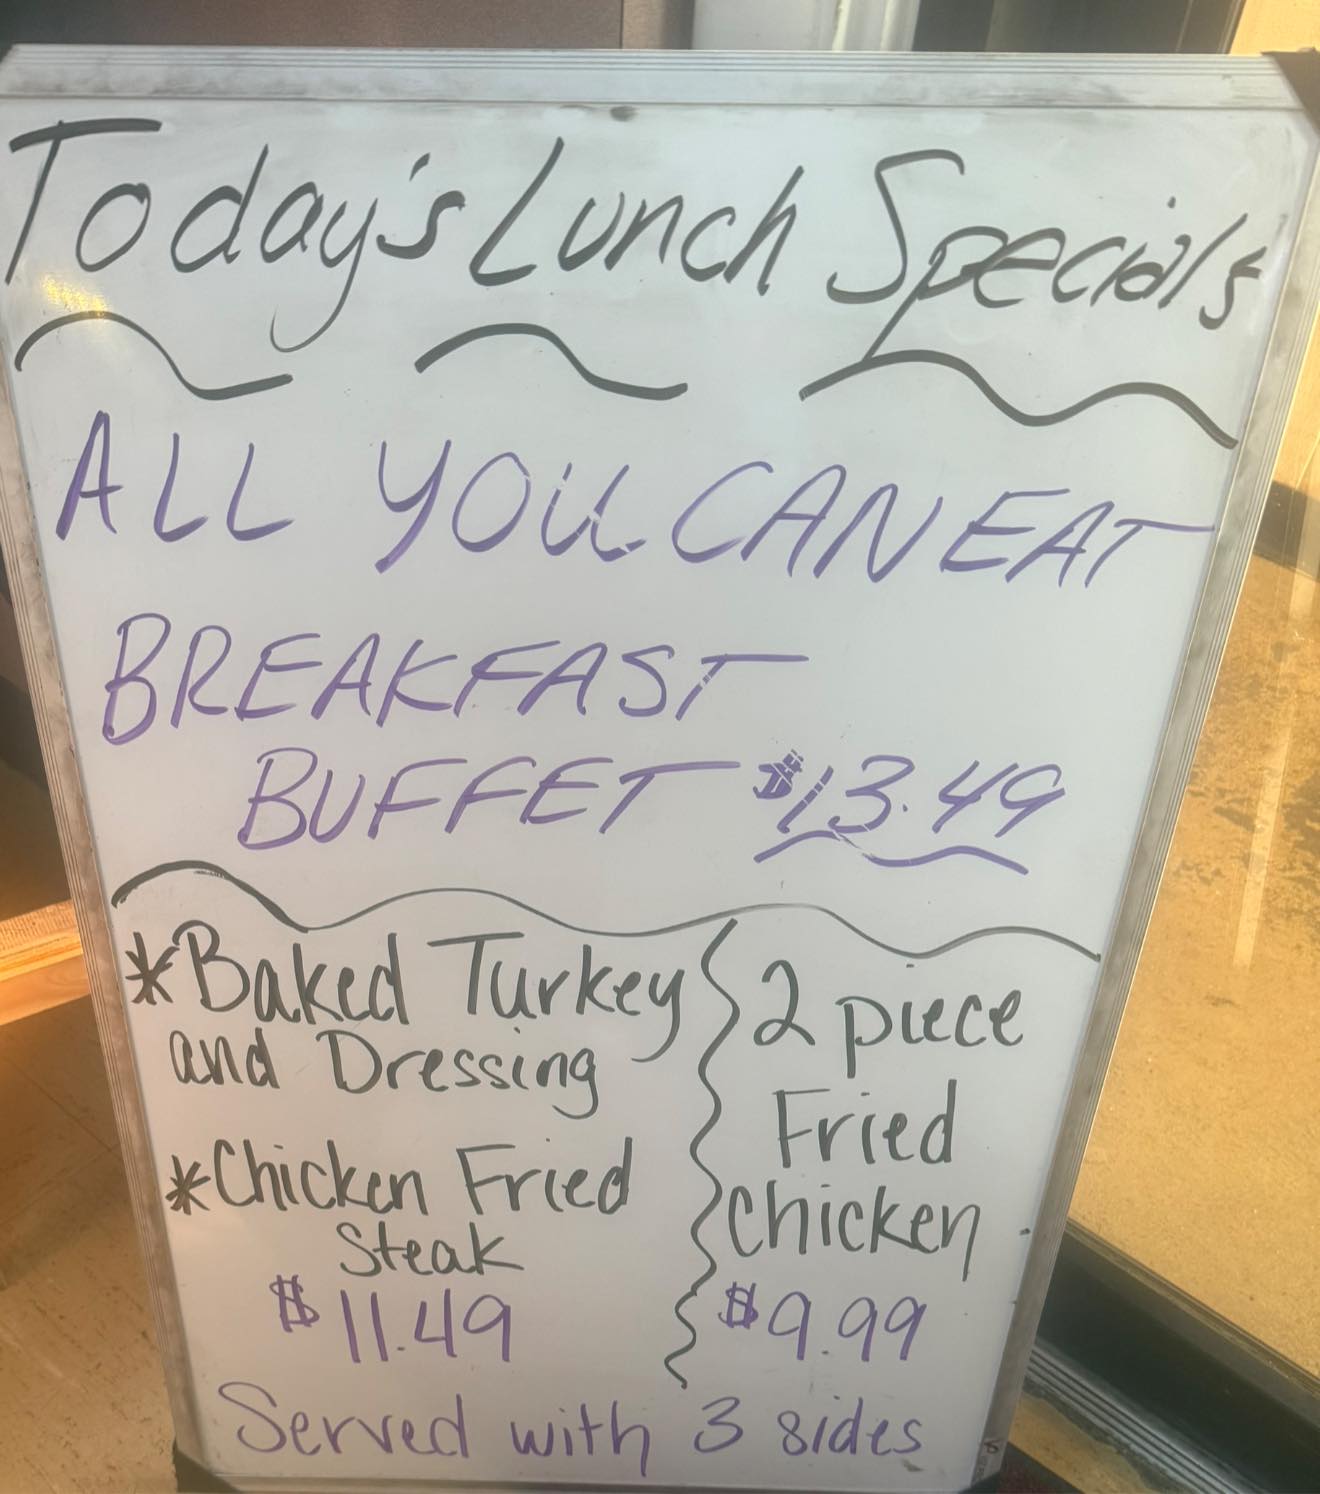 Today's Lunch Specials
ALL YOU CAN EAT
BREAKFAST
BUFFET $13.49
*Baked Turkey
and Dressing
*Chicken Fried
Steak
$11.49
2 piece
Fried
Chicken
$9.99
Served with 3 sides